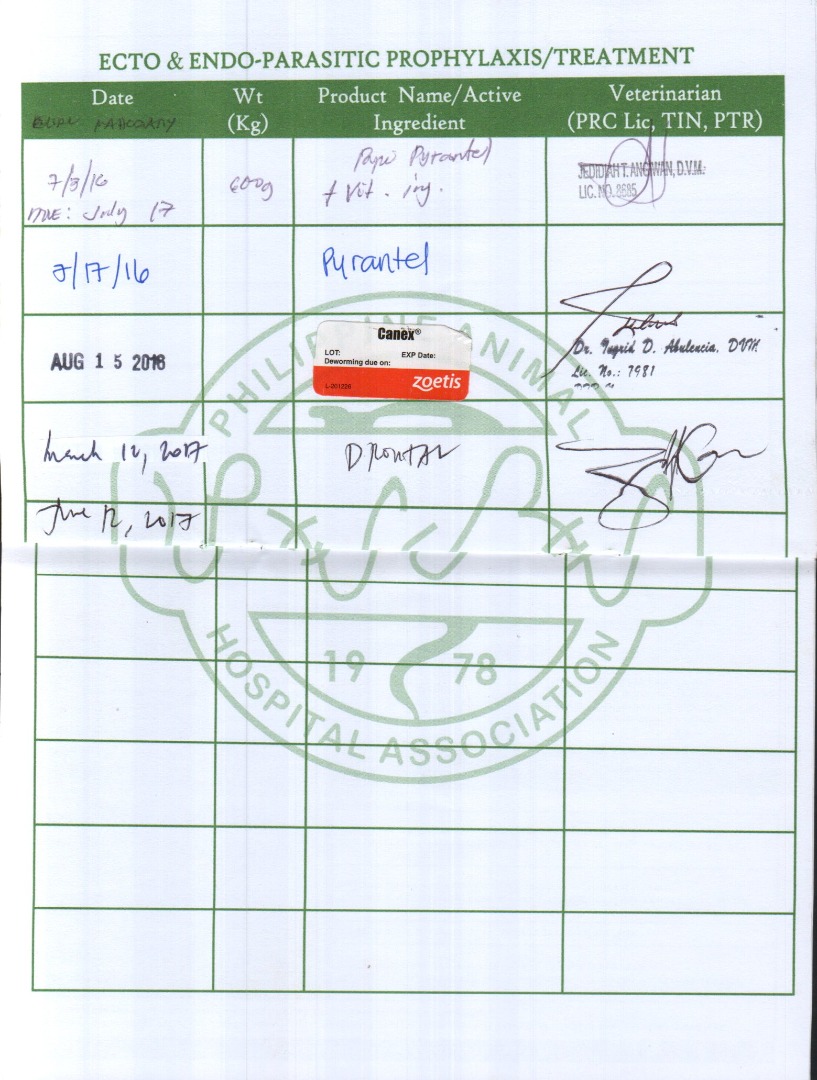 ECTO & ENDO-PARASITIC PROPHYLAXIS/TREATMENT
Date
Wt
(Kg)
Product Name/Active
Ingredient
Veterinarian
(PRC Lic, TIN, PTR)
7/3/16
DUE: July 17
600g
Pyrantel
+ Vit. inj.
JEDIDIAH T. ANGWAN, D.V.M.
LIC. NO. 8685
7/17/16
Pyrantel
AUG 15 2016
Canex®
LOT:
EXP Date:
Deworming due on:
L-201226
zoetis
Dr. Ingrid D. Abulencia, DVM
Lic. No.: 7981
March 12, 2017
DRONTAL
June 12, 2017
PHILIPPINE ANIMAL
19 78
HOSPITAL ASSOCIATION